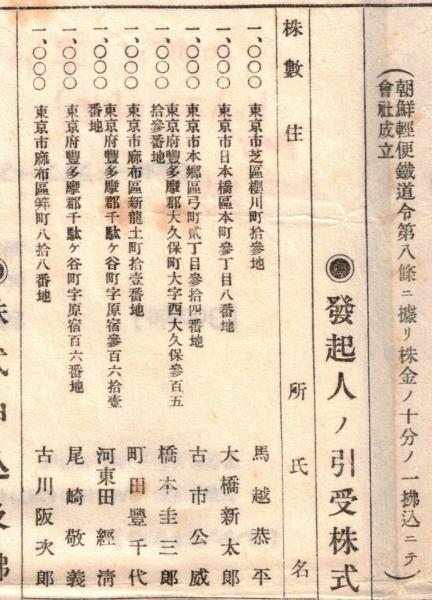 (朝鮮輕便鐵道令第八條ニ據リ株金ノ十分ノ一拂込ニテ
會社成立)
◉發起人ノ引受株式
株數 住所 氏名
一、〇〇〇 東京市芝區櫻川町拾參地 馬越恭平
一、〇〇〇 東京市日本橋區本町參丁目八番地 大橋新太郎
一、〇〇〇 東京市本鄕區弓町貳丁目參拾四番地 古市公威
一、〇〇〇 東京府豐多摩郡大久保町大字西大久保參百五
拾參番地 橋本圭三郞
一、〇〇〇 東京市麻布區新龍土町拾壹番地 町田豐千代
一、〇〇〇 東京府豐多摩郡千駄ヶ谷町字原宿參百六拾壹
番地 河東田經淸
一、〇〇〇 東京府豐多摩郡千駄ヶ谷町字原宿百六番地 尾崎敬義
一、〇〇〇 東京市麻布區笄町八拾八番地 古川阪次郞